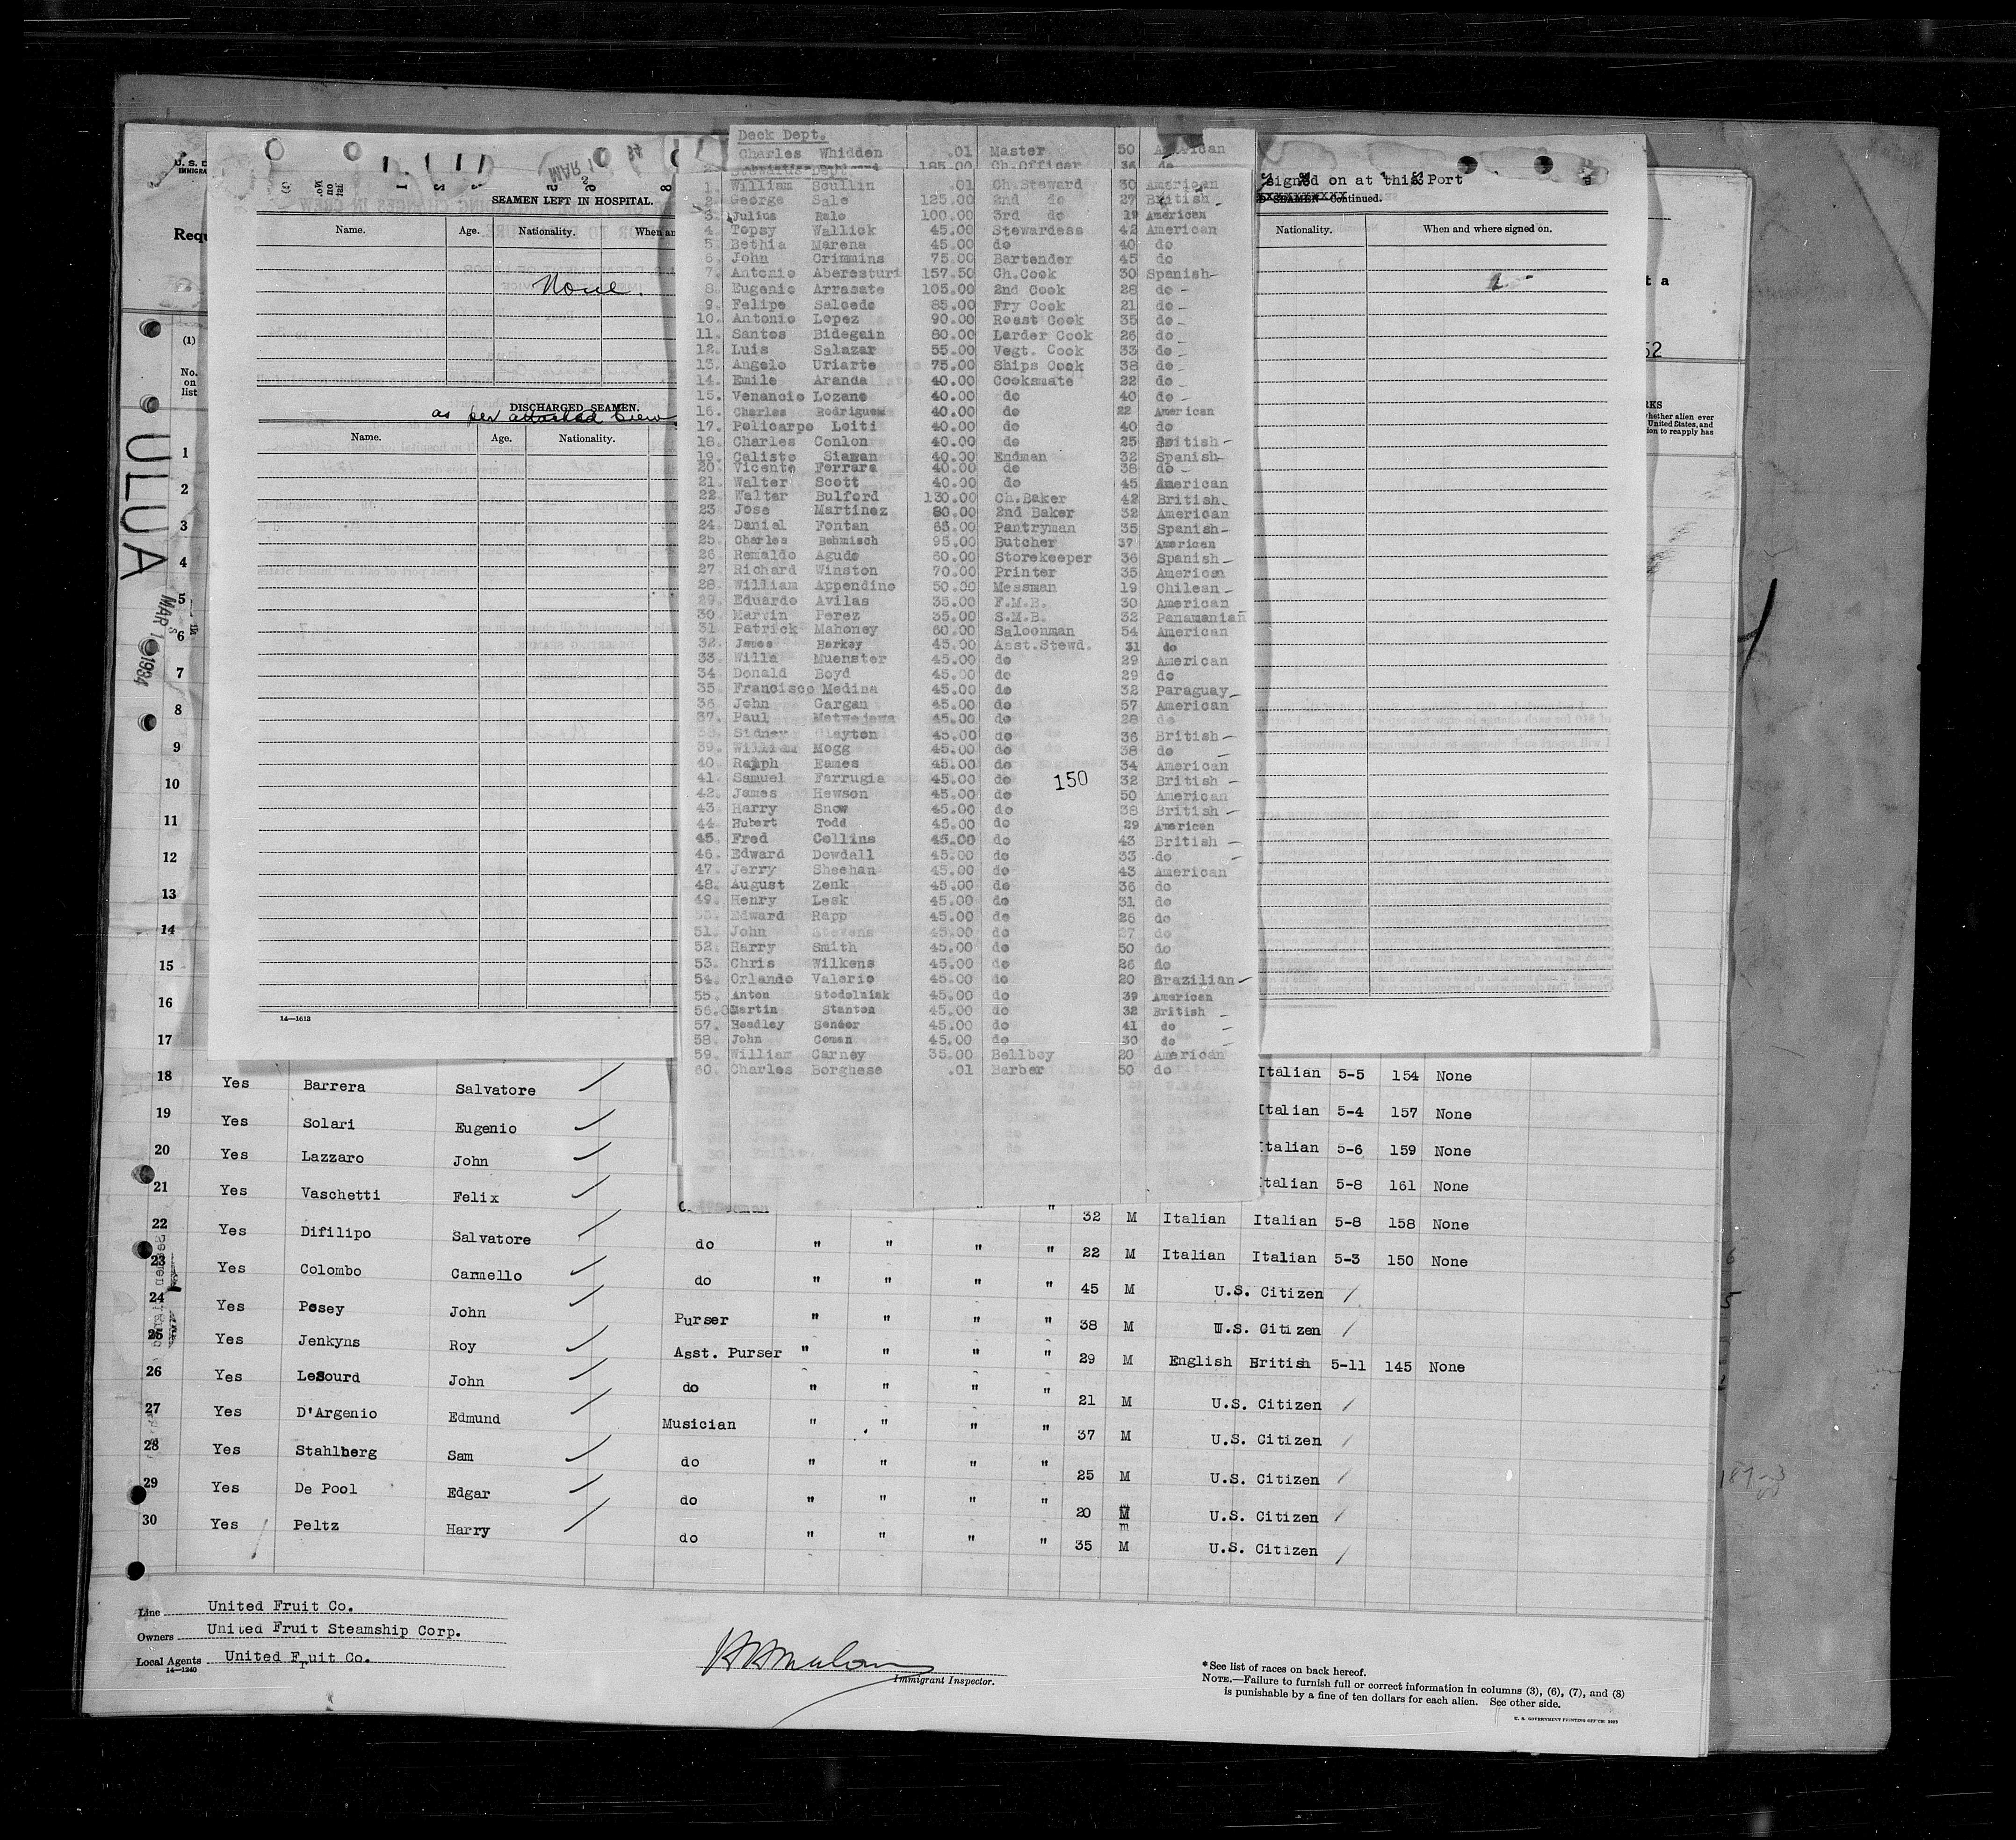 U.S. D
IMMIGRA
MAR 1
SEAMEN LEFT IN HOSPITAL.
Name. Age. Nationality. When an
None.
DISCHARGED SEAMEN.
as per attached Crew
Name. Age. Nationality.
14—1613
Requ
(1)
No. on list
ULUA
MAR 1 1934
Deck Dept.
Charles Whidden .01 Master 50 American
185.00 Ch.Officer 36 do
Stewards Dept
1. William Scullin .01 Ch.Steward 30 American
2. George Sale 125.00 2nd do 27 British
3. Julius Ralo 100.00 3rd do 19 American
4. Topsy Wallick 45.00 Stewardess 42 American
5. Bethia Marena 45.00 do 40 do
6. John Crimmins 75.00 Bartender 45 do
7. Antonio Aberesturi 157.50 Ch.Cook 30 Spanish-
8. Eugenio Arrasate 105.00 2nd Cook 28 do -
9. Felipe Salcedo 85.00 Fry Cook 21 do -
10. Antonio Lopez 90.00 Roast Cook 35 do -
11. Santos Bidegain 80.00 Larder Cook 26 do -
12. Luis Salazar 55.00 Vegt. Cook 33 do -
13. Angelo Uriarte 75.00 Ships Cook 38 do -
14. Emile Aranda 40.00 Cooksmate 22 do -
15. Venancio Lozano 40.00 do 40 do -
16. Charles Rodriguez 40.00 do 22 American
17. Policarpo Loiti 40.00 do 40 do
18. Charles Conlon 40.00 do 25 British -
19. Calisto Siaman 40.00 Endman 32 Spanish-
20. Vicente Ferrara 40.00 do 38 do -
21. Walter Scott 40.00 do 45 American
22. Walter Bulford 130.00 Ch.Baker 42 British-
23. Jose Martinez 80.00 2nd Baker 32 American
24. Daniel Fontan 65.00 Pantryman 35 Spanish-
25. Charles Behmisch 95.00 Butcher 37 American
26 Remaldo Agudo 60.00 Storekeeper 36 Spanish-
27. Richard Winston 70.00 Printer 35 American
28. William Appendino 50.00 Messman 19 Chilean -
29. Eduardo Avilas 35.00 F.M.B. 30 American
30 Marvin Perez 35.00 S.M.B. 32 Panamanian
31 Patrick Mahoney 60.00 Saloonman 54 American
32. James Harkey 45.00 Asst.Stewd. 31 do
33. Willa Muenster 45.00 do 29 American
34 Donald Boyd 45.00 do 29 do
35. Francisco Medina 45.00 do 32 Paraguay-
36 John Gargan 45.00 do 57 American
37. Paul Metwejawa 45.00 do 28 do
38. Sidney Clayton 45.00 do 36 British -
39. William Mogg 45.00 do 38 do -
40. Ralph Eames 45.00 do 34 American
41. Samuel Farrugia 45.00 do 32 British -
150
42. James Hewson 45.00 do 50 American
43. Harry Snow 45.00 do 38 British -
44. Hubert Todd 45.00 do 29 American
45. Fred Collins 45.00 do 43 British -
46. Edward Dowdall 45.00 do 33 do -
47. Jerry Sheehan 45.00 do 43 American
48. August Zenk 45.00 do 36 do
49. Henry Lesk 45.00 do 31 do
Edward Rapp 45.00 do 26 do
51. John Stevens 45.00 do 27 do
52. Harry Smith 45.00 do 50 do
53. Chris Wilkens 45.00 do 26 do
54. Orlando Valerio 45.00 do 20 Brazilian-
55. Anton Stodolniak 45.00 do 39 American
56. Martin Stanton 45.00 do 32 British -
57. Headley Sendor 45.00 do 41 do -
58. John Coman 45.00 do 30 do -
59. William Carney 35.00 Bellboy 20 American
60. Charles Borghese .01 Barber 50 do
signed on at this Port
SEAMEN—Continued.
Nationality. When and where signed on.
t a
52
RKS
hether alien ever
United States, and
ion to reapply has
1
2
3
4
5
6
7
8
9
10
11
12
13
14
15
16
17
18 Yes Barrera Salvatore Italian 5-5 154 None
19 Yes Solari Eugenio Italian 5-4 157 None
20 Yes Lazzaro John Italian 5-6 159 None
21 Yes Vaschetti Felix Italian 5-8 161 None
22 Yes Difilipo Salvatore do " " " " 32 M Italian Italian 5-8 158 None
23 Yes Colombo Carmello do " " " " 22 M Italian Italian 5-3 150 None
24 Yes Posey John Purser " " " " 45 M U.S. Citizen
25 Yes Jenkyns Roy Asst. Purser " " " " 38 M U.S. Citizen
26 Yes LeSourd John do " " " " 29 M English British 5-11 145 None
27 Yes D'Argenio Edmund Musician " " " " 21 M U.S. Citizen
28 Yes Stahlberg Sam do " " " " 37 M U.S. Citizen
29 Yes De Pool Edgar do " " " " 25 M U.S. Citizen
30 Yes Peltz Harry do " " " " 20 M U.S. Citizen
35 M U.S. Citizen
Line United Fruit Co.
Owners United Fruit Steamship Corp.
Local Agents United Fruit Co.
14—1240
Immigrant Inspector.
*See list of races on back hereof.
NOTE.—Failure to furnish full or correct information in columns (3), (6), (7), and (8)
is punishable by a fine of ten dollars for each alien. See other side.
U. S. GOVERNMENT PRINTING OFFICE: 1933